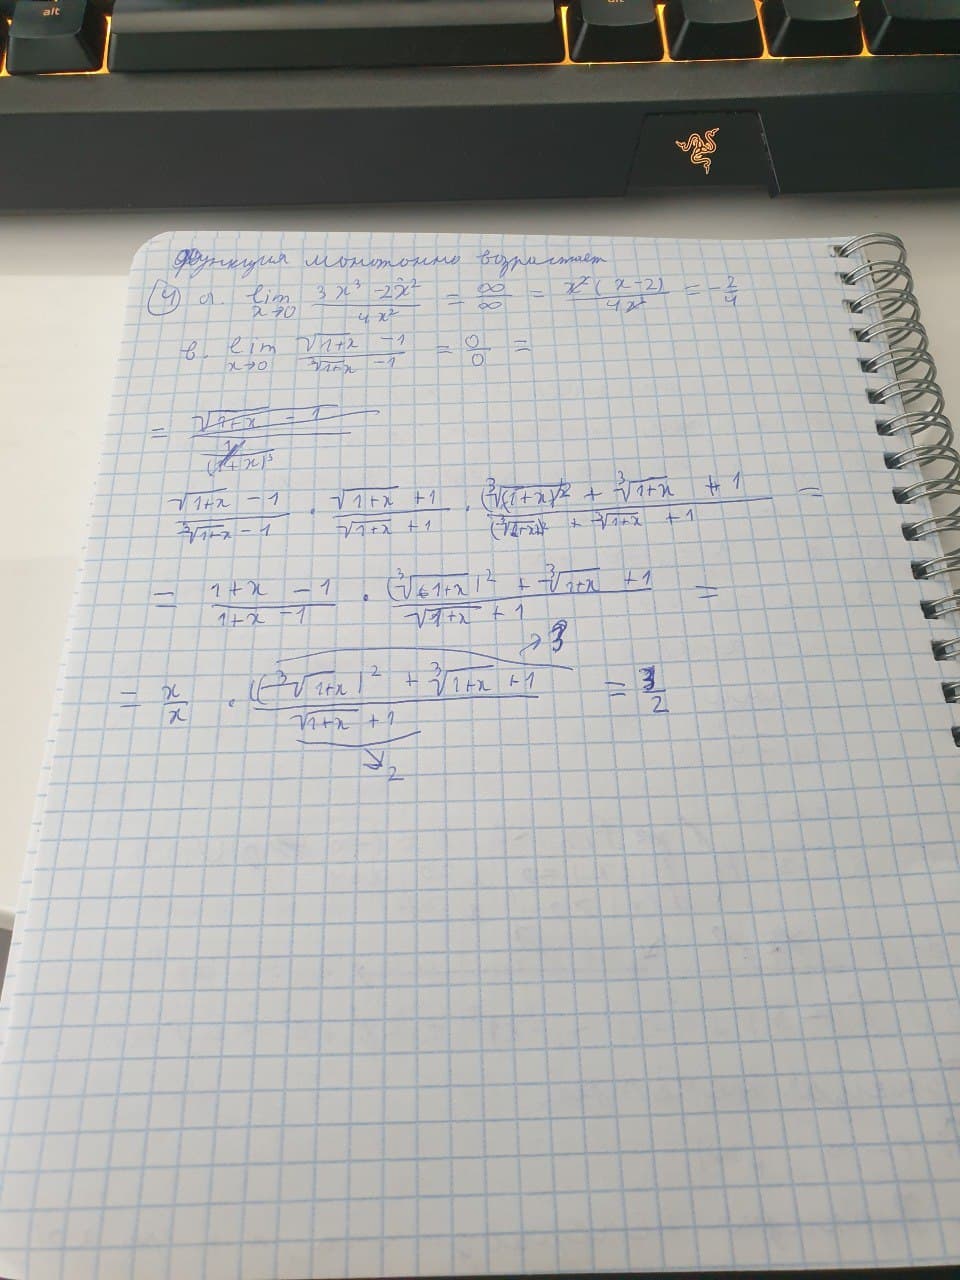 alt
alt
Функция монотонно возрастает
4) a. lim x→0 (3x³ - 2x²)/(4x²) = ∞/∞ = x²(x-2)/(4x²) = -2/4
b. lim x→0 (√(1+x) - 1)/(∛(1+x) - 1) = 0/0 =
= (√(1+x) - 1)/((1+x)³)
(√(1+x) - 1)/(∛(1+x) - 1) · (√(1+x) + 1)/(√(1+x) + 1) · (∛(1+x)² + ∛(1+x) + 1)/((∛(1+x))² + ∛(1+x) + 1) =
= (1+x - 1)/(1+x - 1) · ((∛(1+x))² + ∛(1+x) + 1)/(√(1+x) + 1) =
→3
= x/x · ((∛(1+x))² + ∛(1+x) + 1)/(√(1+x) + 1) = 3/2
↘2